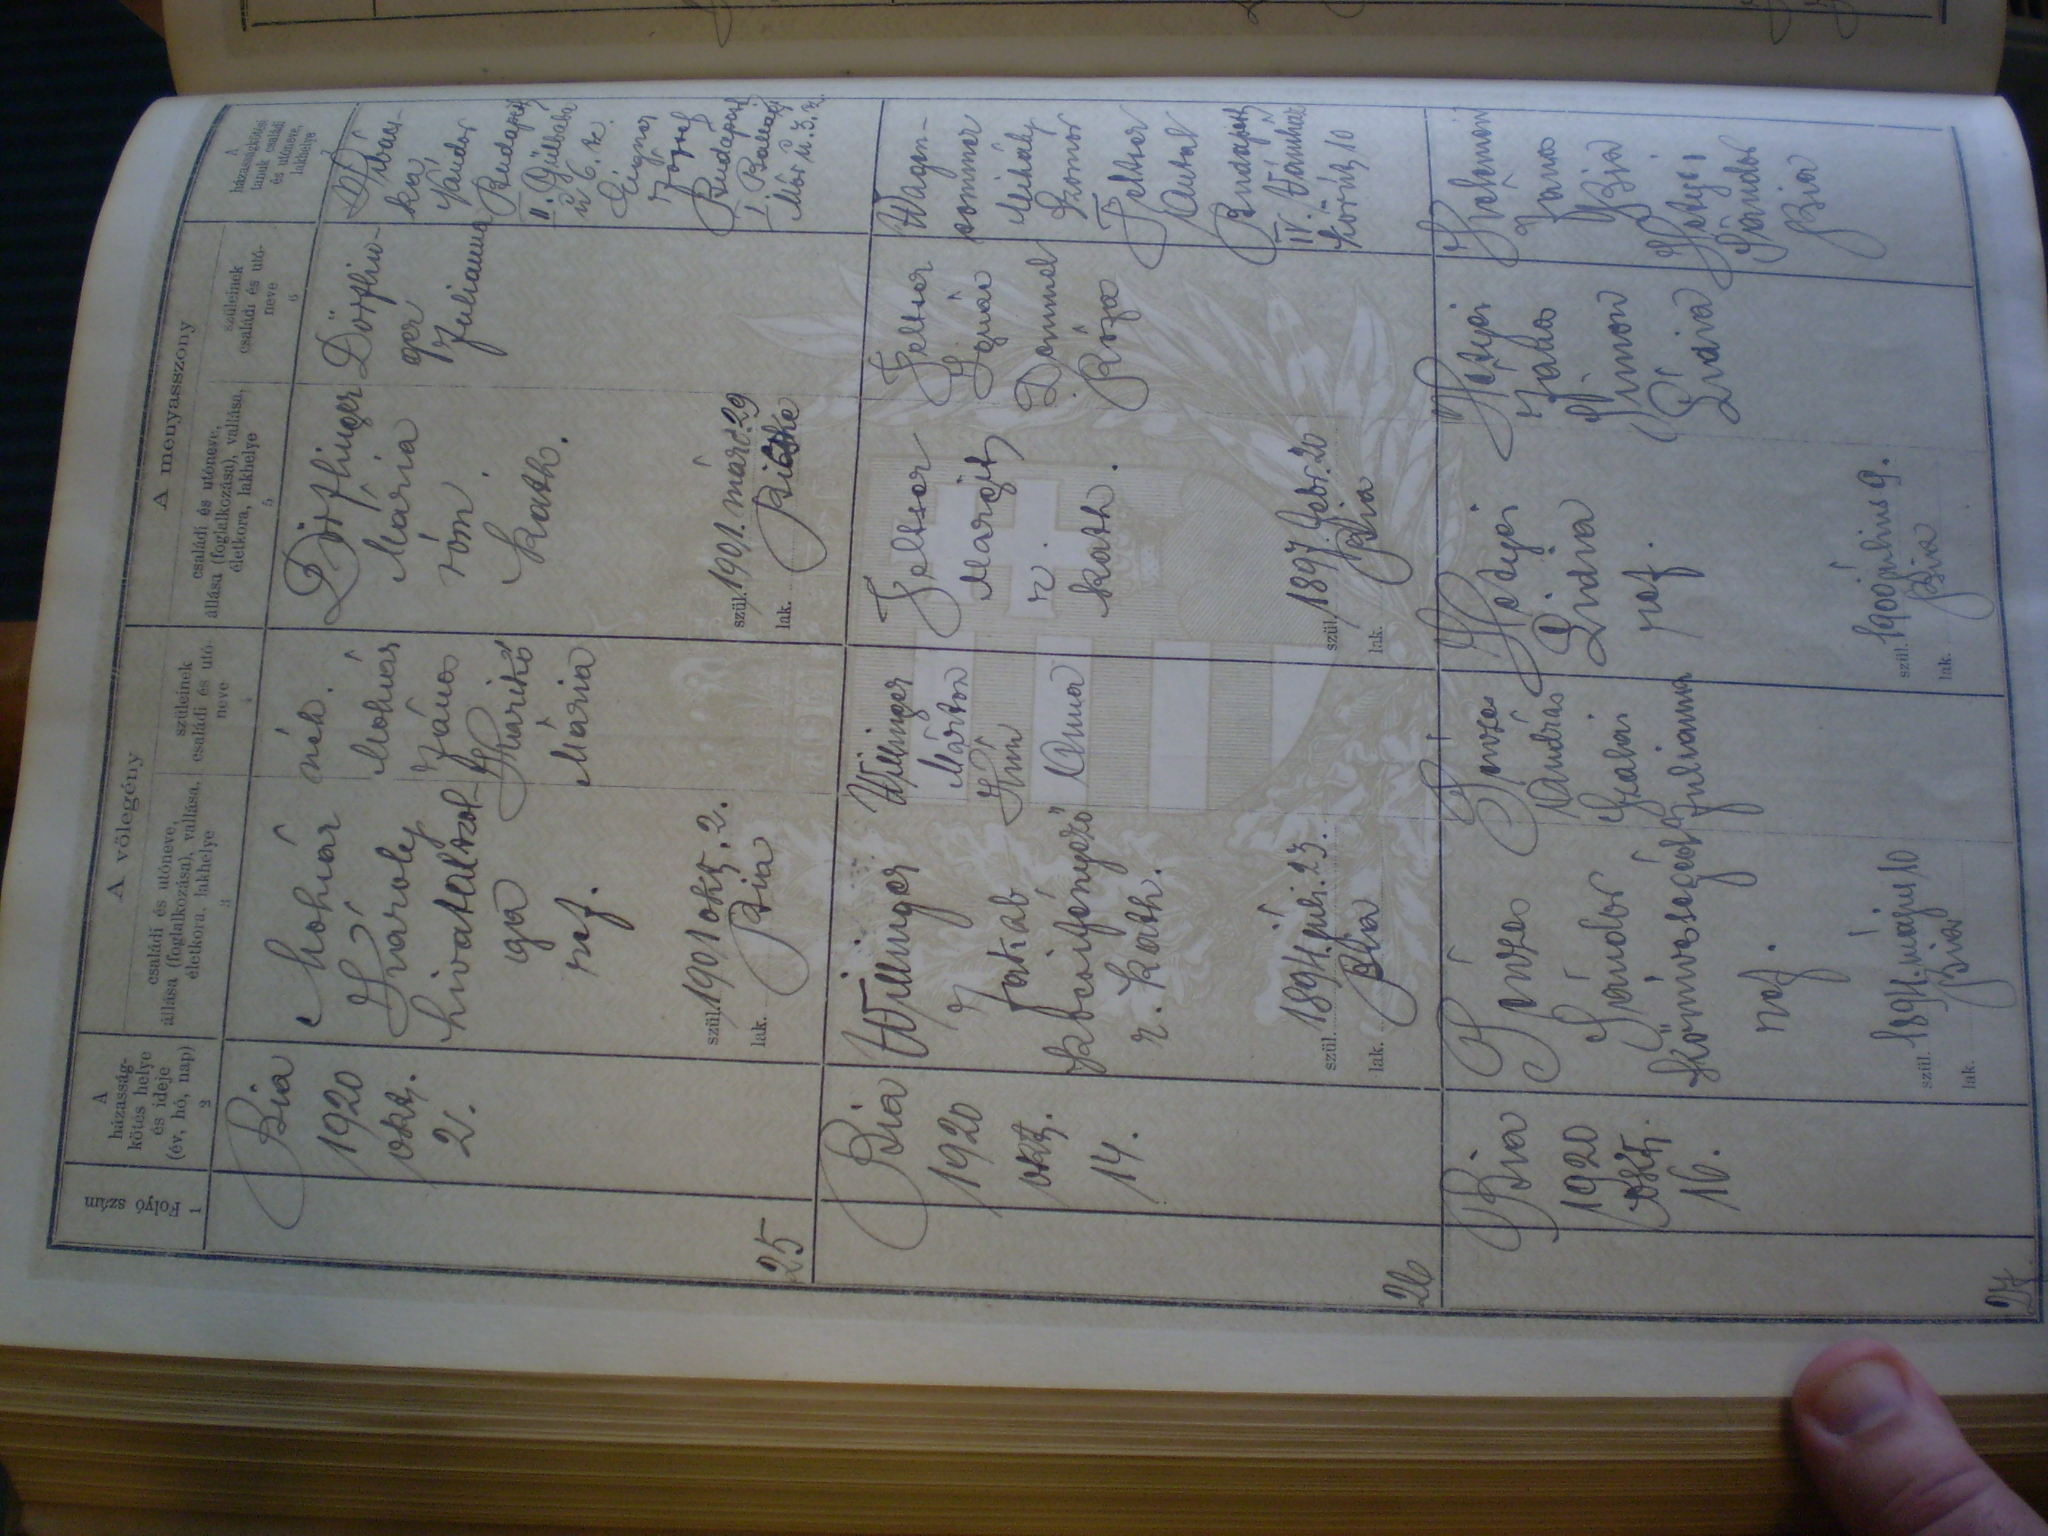 Folyó szám
1
A
házasság-
kötés helye
és ideje
(év, hó, nap)
2
A vőlegény
családi és utóneve,
állása (foglalkozása), vallása,
életkora, lakhelye
3
szüleinek
családi és utó-
neve
4
A menyasszony
családi és utóneve,
állása (foglalkozása), vallása,
életkora, lakhelye
5
szüleinek
családi és utó-
neve
6
A
házasságkötési
tanuk családi
és utóneve,
lakhelye
7
25
Bia
1920
okt.
2.
Mohiár
Károly
hivatalszol-
ga
ref.
szül. 1901 okt. 2.
lak. Bia
néh.
Mohiár
János
Harikó
Mária
Dörflinger
Mária
róm.
kath.
szül. 1901. márc. 29
lak. Bicske
Dörflin-
ger
Julianna
ka
Nándor
Budapest
II. Gülbaba
u 6. sz.
József
Budapest
I Ballagi
Mór u. 3. sz.
26
Bia
1920
okt.
14.
Willinger
Jakab
kocsifényező
r. kath.
szül. 1894. juli. 23.
lak. Bia
Willinger
Márton
Hirn
Anna
Feltser
Margit
r.
kath.
szül. 1897. febr. 20
lak. Bia
Feltser
Ignác
Dommel
Róza
Wagen-
sommer
Mihály
Zsomor
Feltser
Antal
Budapest
IV. Vámház
körút 10
27
Bia
1920
okt.
16.
Sándor
kőmivessegéd
ref.
szül. 1894. május 10
lak. Bia
András
Julianna
Hetyei
Lidia
ref.
szül. 1900 julius 9.
lak. Bia
Hetyei
János
Simon
Lidia
Kelemen
János
Bia
Hetyei
Sándor
Bia